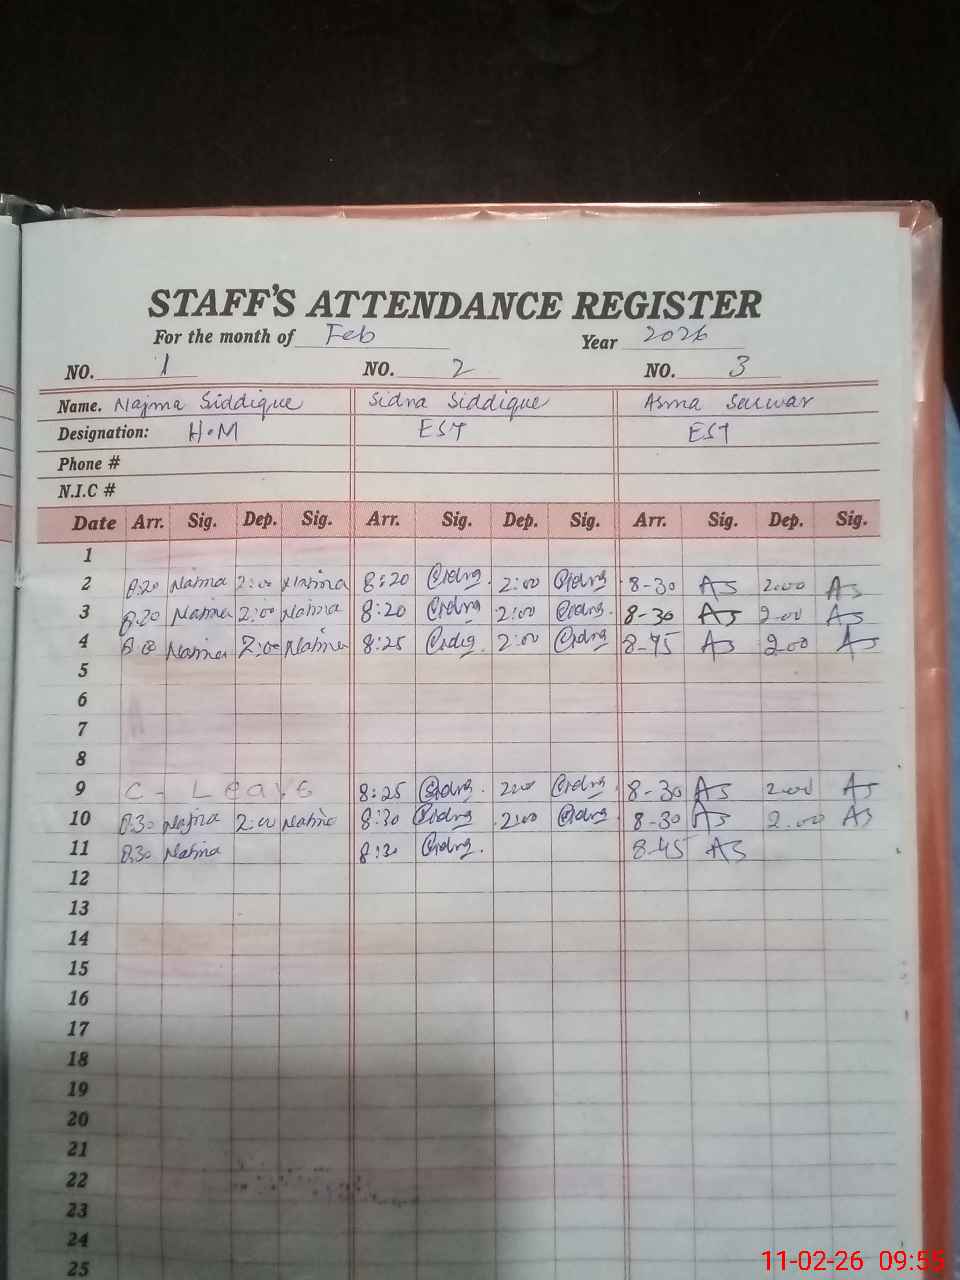 STAFF'S ATTENDANCE REGISTER
For the month of Feb Year 2026
NO. 1 NO. 2 NO. 3
Name. Najma Siddique Sidra Siddique Asma Sarwar
Designation: H.M EST EST
Phone #
N.I.C #
Date Arr. Sig. Dep. Sig. Arr. Sig. Dep. Sig. Arr. Sig. Dep. Sig.
1
2 8:20 Najma 2:00 Najma 8:20 Sidra 2:00 Sidra 8-30 AS 2.00 AS
3 8:20 Najma 2:00 Najma 8:20 Sidra 2:00 Sidra 8-30 AS 2.00 AS
4 Najma 2:00 Najma 8:25 Sidra 2:00 Sidra AS 2.00 AS
5
6
7
8
9 C - Leave 8:25 Sidra 2:00 Sidra 8-30 AS 2.00 AS
10 8:30 Najma 2:00 Najma 8:30 Sidra 2:00 Sidra 8-30 AS 2.00 AS
11 8:30 Najma 8:30 Sidra 8-45 AS
12
13
14
15
16
17
18
19
20
21
22
23
24
25
11-02-26 09:55